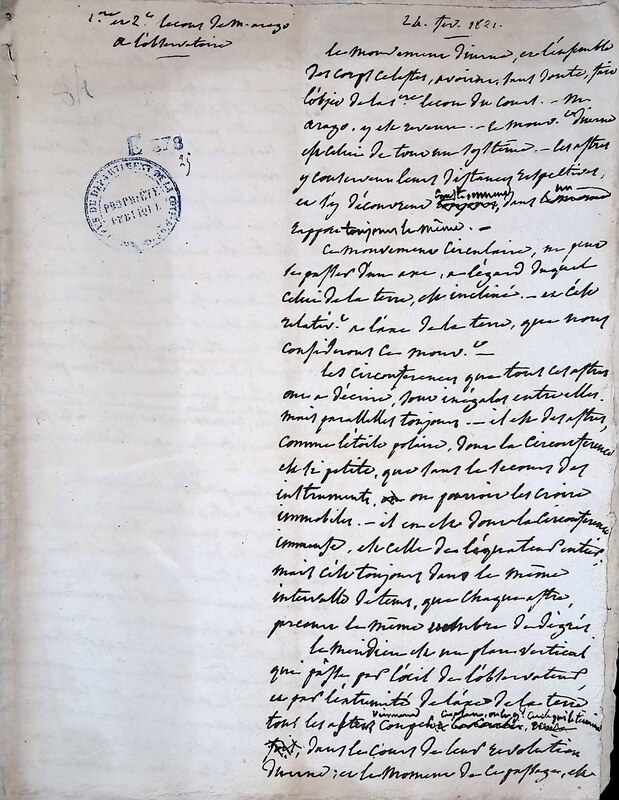 1re et 2e leçons de M. arago
a l'observatoire
E 378
PROPRIÉTÉ
PUBLIQUE
24. fev. 1821.
le mouvement diurne, et l'ensemble
des corps celestes, avoient, sans doute, fait
l'objet de la 1ere lecon du cours. - M.
arago. y est revenu. - le mouv.t diurne
est celui de tout un systême. - les astres
y conservent leurs distances respectives,
et s'y découvrent constamment toujours, dans un
rapport toujours le même. -
Ce mouvement circulaire, ne peut
se passer d'un axe, a l'égard duquel
celui de la terre, est incliné. - et c'est
relativ.t a l'axe de la terre, que nous
considerons ce mouv.t -
les circonferences que tous ces astres
ont a décrire, sont inégales entre elles.
mais paralleles toujours. - il est des astres,
comme l'étoile polaire, dont la circonference
est si petite, que sans le secours des
instruments, on pourroit les croire
immobiles. - il en est dont la circonference
immense, est celle de l'équateur entier.
mais c'est toujours dans le même
intervalle de tems, que chaque astre,
parcourt le même nombre de degrés
le meridien est un plan vertical
qui passe par l'oeil de l'observateur,
et par l'extremité de l'axe de la terre
tous les astres viennent couper
dans le cours de leur revolution
diurne : et le moment de ce passage, est